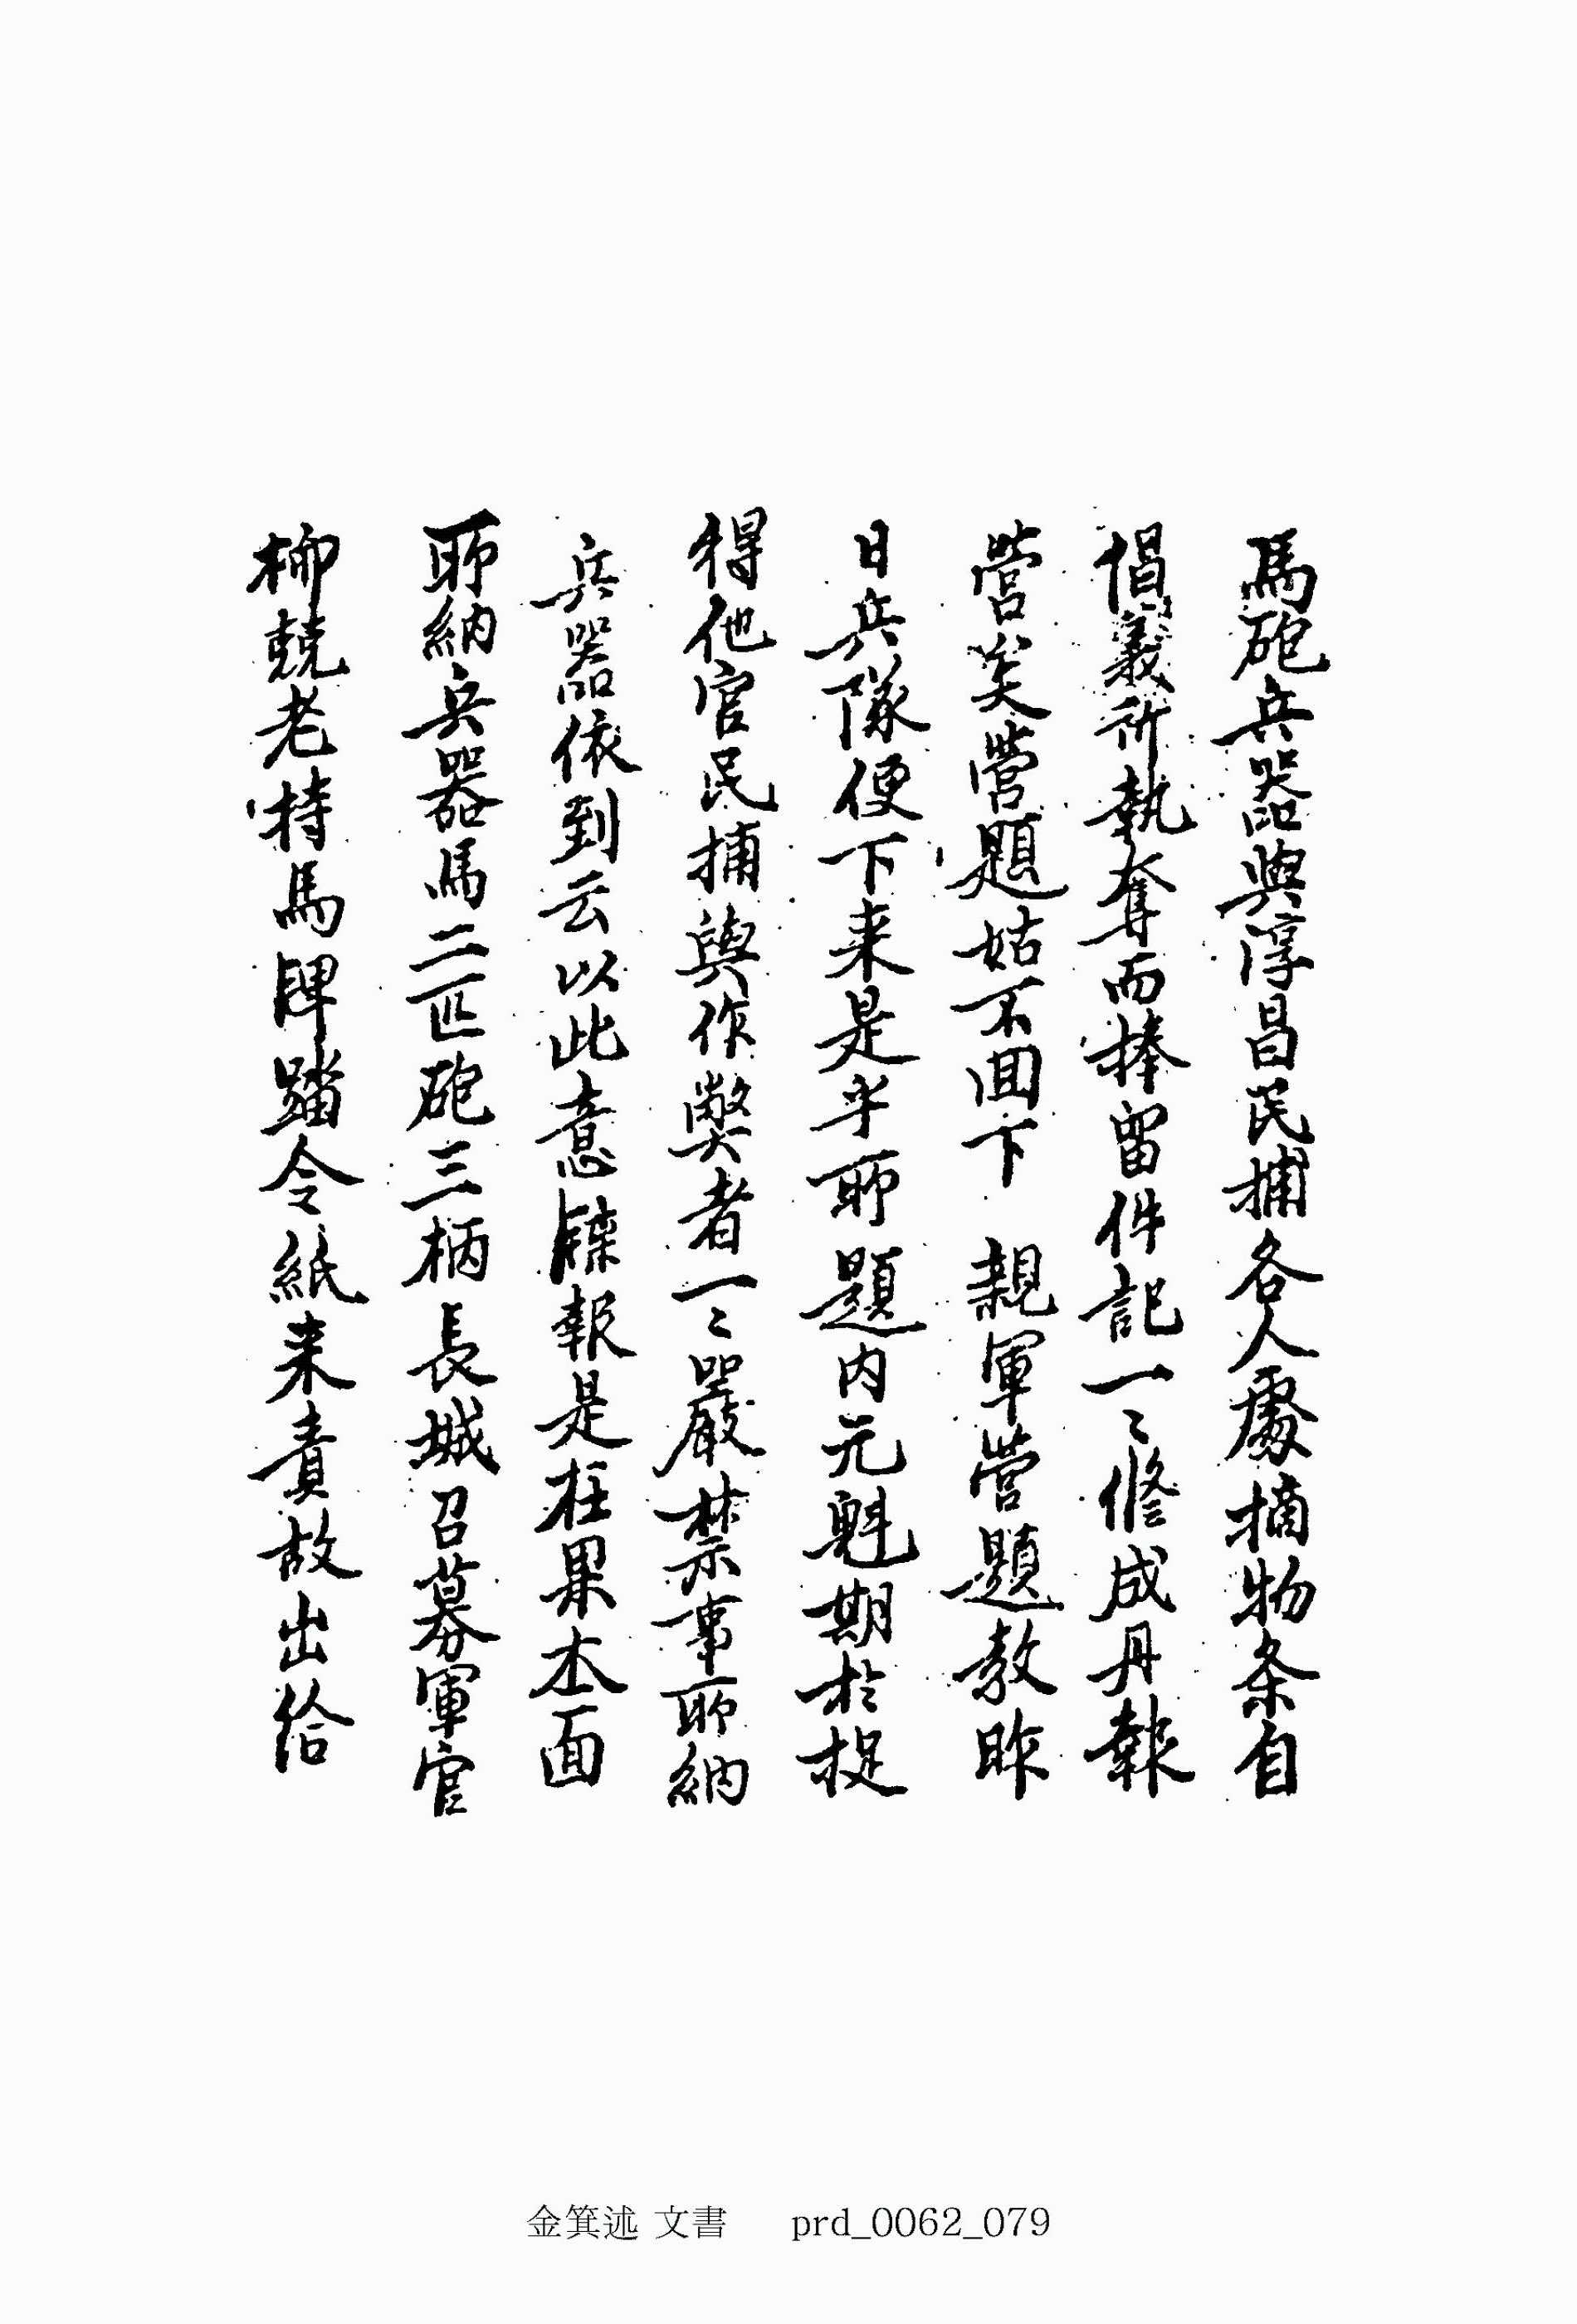 馬砲兵器與淳昌民捕各人處摘物条自
倡義所執奪而捧留件記一〻修成丹報
營矣營題姑不回下 親軍營題教昨
日兵隊便下来是乎所題内元魁期於捉
得他官民捕與作弊者一〻嚴禁事所納
兵器依到云以此意牒報是在果本面
所納兵器馬二匹砲三柄長城召募軍官
柳兢老持馬牌踏令紙来責故出給
金箕述 文書 prd_0062_079